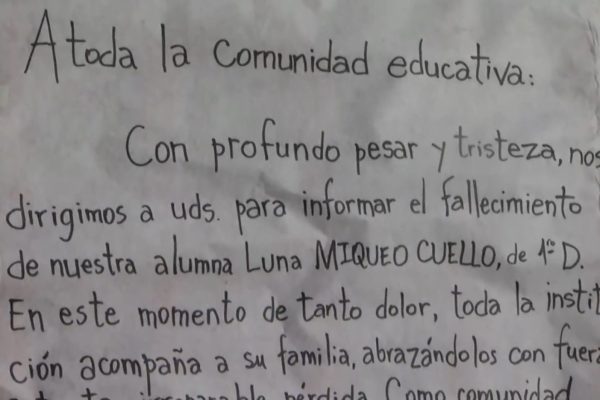 A toda la comunidad educativa:
Con profundo pesar y tristeza, nos
dirigimos a uds. para informar el fallecimiento
de nuestra alumna Luna MIQUEO CUELLO, de 1º D.
En este momento de tanto dolor, toda la instit
ción acompaña a su familia, abrazándolos con fuerz
pérdida. Como comunidad